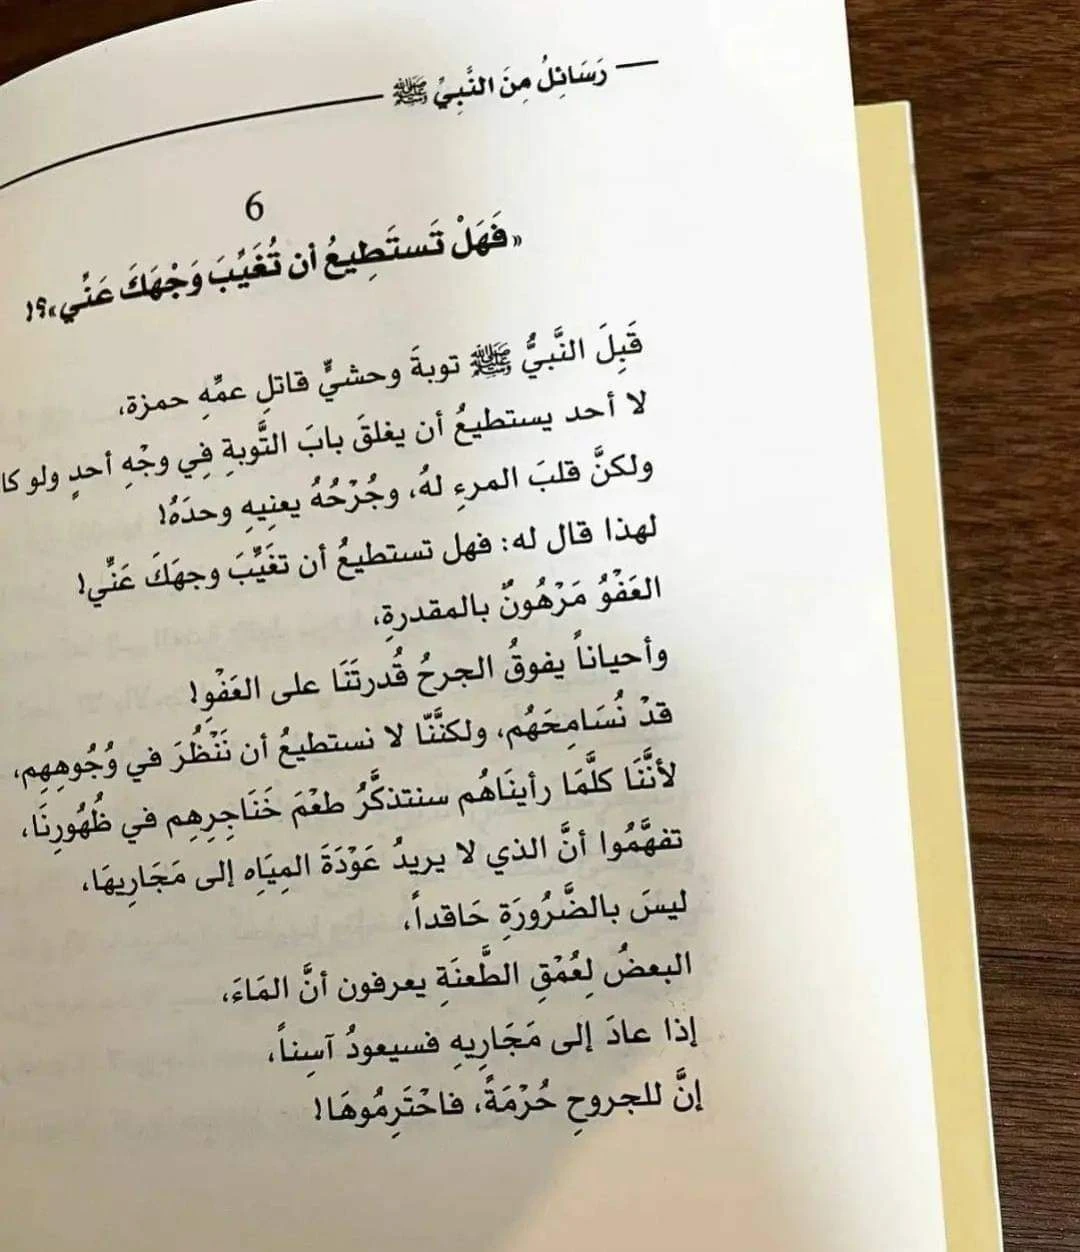 رَسَائِلُ مِنَ النَّبِيِّ ﷺ
6
«فَهَلْ تَستَطِيعُ أن تُغَيِّبَ وَجْهَكَ عَنِّي»؟!
قَبِلَ النَّبيُّ ﷺ توبةَ وحشيٍّ قاتلِ عمِّهِ حمزة،
لا أحد يستطيعُ أن يغلقَ بابَ التَّوبةِ فِي وجْهِ أحدٍ ولو كا
ولكنَّ قلبَ المرءِ لهُ، وجُرْحُهُ يعنِيهِ وحدَهُ!
لهذا قال له: فهل تستطيعُ أن تغَيِّبَ وجهَكَ عَنِّي!
العَفْوُ مَرْهُونٌ بالمقدرةِ،
وأحياناً يفوقُ الجرحُ قُدرتَنَا على العَفْوِ!
قدْ نُسَامِحَهُم، ولكنَّنّا لا نستطيعُ أن نَنْظُرَ في وُجُوهِهِم،
لأنَّنَا كلَّمَا رأينَاهُم سنتذكَّرُ طعْمَ خَنَاجِرِهِم في ظُهُورِنَا،
تفهَّمُوا أنَّ الذي لا يريدُ عَوْدَةَ المِيَاهِ إلى مَجَارِيهَا،
ليسَ بالضَّرُورَةِ حَاقداً،
البعضُ لِعُمْقِ الطَّعنَةِ يعرفون أنَّ المَاءَ،
إذا عادَ إلى مَجَارِيهِ فسيعودُ آسِناً،
إنَّ للجروحِ حُرْمَةً، فاحْتَرِمُوهَا!